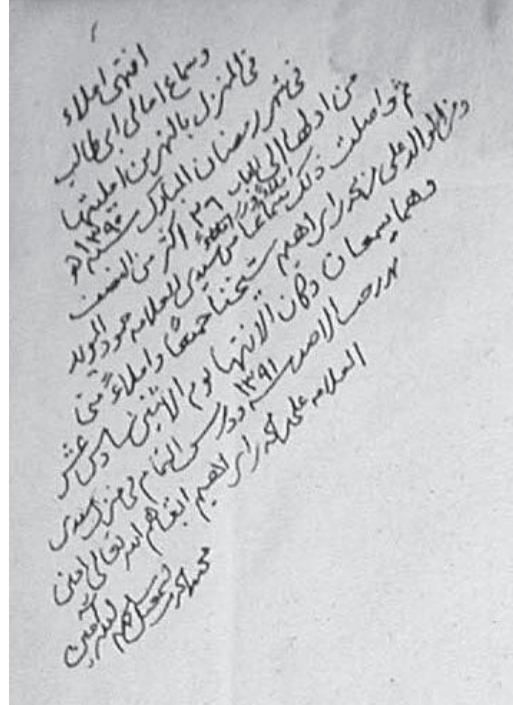 انتهى املاء
وسماع امالي ابي طالب
في المنزل بالنهرين امليتها
في شهر رمضان المبارك سنة ١٣٩٠هـ
من اولها الى الباب ٣٦ اكثر من النصف
ثم واصلت ذلك سماعا من سيدي العلامه حمود المويد
ومن الوالد علي ابراهيم شيخنا جميعا واملاءً مني
وهما يسمعان وكان الانتها يوم الاثنين سادس عشر
الاصب سنة ١٣٩١ التمام في منزل سيدي
العلامه علي ابراهيم ابقاهم الله تعالى امين
امين